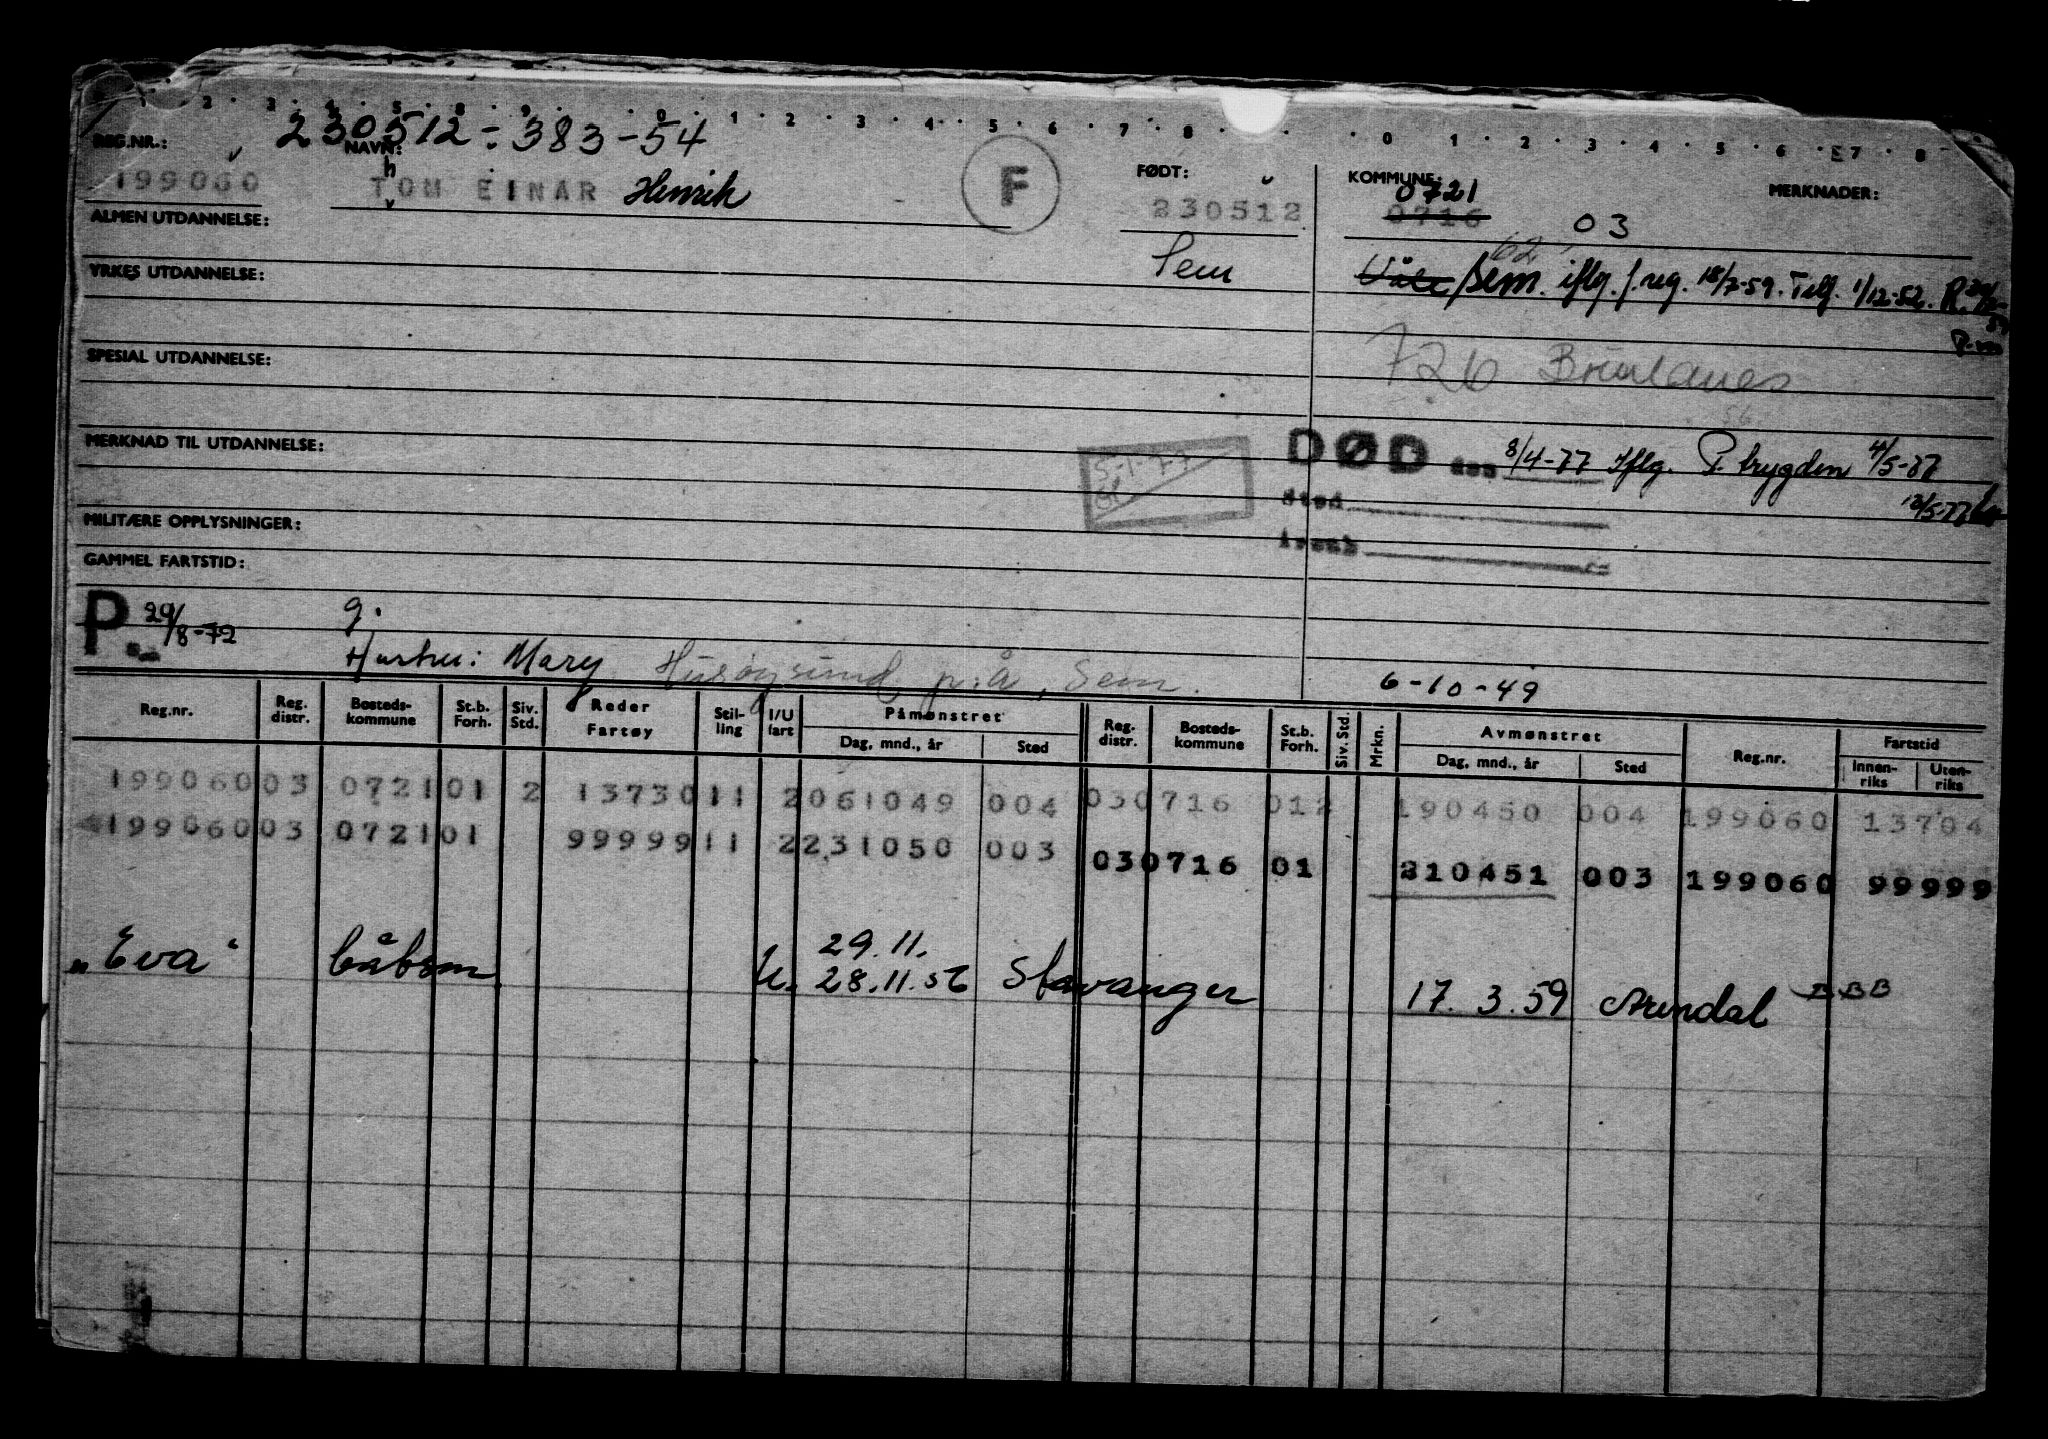 1 . 2 . 3 . 4 . 5 . 8 . 9 . 0 . 1 . 2 . 3 . 4 . 5 . 6 . 7 . 8 . 0 . 1 . 2 . 3 . 4 . 5 . 6 . 7 . 8
230512-383-54
REG.NR.: NAVN: FØDT: KOMMUNE: MERKNADER:
h 0721
199060 TOM EINAR Henrik F 230512 0716 03
ALMEN UTDANNELSE:
Sem 62
YRKES UTDANNELSE: Våle/Sem. iflg. f.reg. 18/7-59. Telf. 1/12-52. R.
726 Brunlanes
SPESIAL UTDANNELSE:
56
MERKNAD TIL UTDANNELSE: 5-1-77 DØD den 8/4-77 Iflg. P. trygden 4/5-77
Sted 12/5-77
MILITÆRE OPPLYSNINGER:
Årsak
GAMMEL FARTSTID:
P. 29/8-72 g.
Hustru: Mary Husøysund p.å, Sem. 6-10-49
Reg.nr. Reg. distr. Bosteds-kommune St.b. Forh. Siv. Std. Reder Fartøy Stil-ling I/U fart Påmønstret Dag, mnd., år Sted Reg. distr. Bosteds-kommune St.b. Forh. Siv. Std. Mrkn. Avmønstret Dag, mnd., år Sted Reg.nr. Fartstid Innen-riks Uten-riks
199060 03 0721 01 2 13730 11 2 061049 004 03 0716 01 2 190450 004 199060 13704
199060 03 0721 01 99999 11 2 231050 003 03 0716 01 210451 003 199060 99999
29.11.
"Eva" båtsm. U. 28.11.56 Stavanger 17.3.59 Arendal BBB